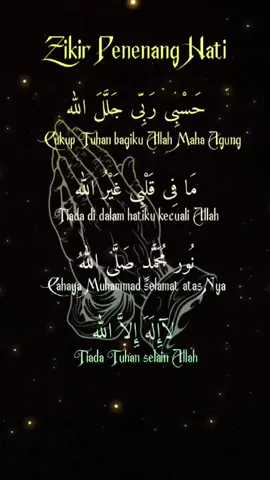 Zikir Penenang Hati
حَسْبِى رَبِّى جَلَّلَ الله
Cukup Tuhan bagiku Allah Maha Agung
مَا فِى قَلْبِى غَيْرُ الله
Tiada di dalam hatiku kecuali Allah
نُور مُحَمَّدٍ صَلَّى اللهُ
Cahaya Muhammad selamat atas Nya
لآإِلَهَ إِلاَّ الله
Tiada Tuhan selain Allah